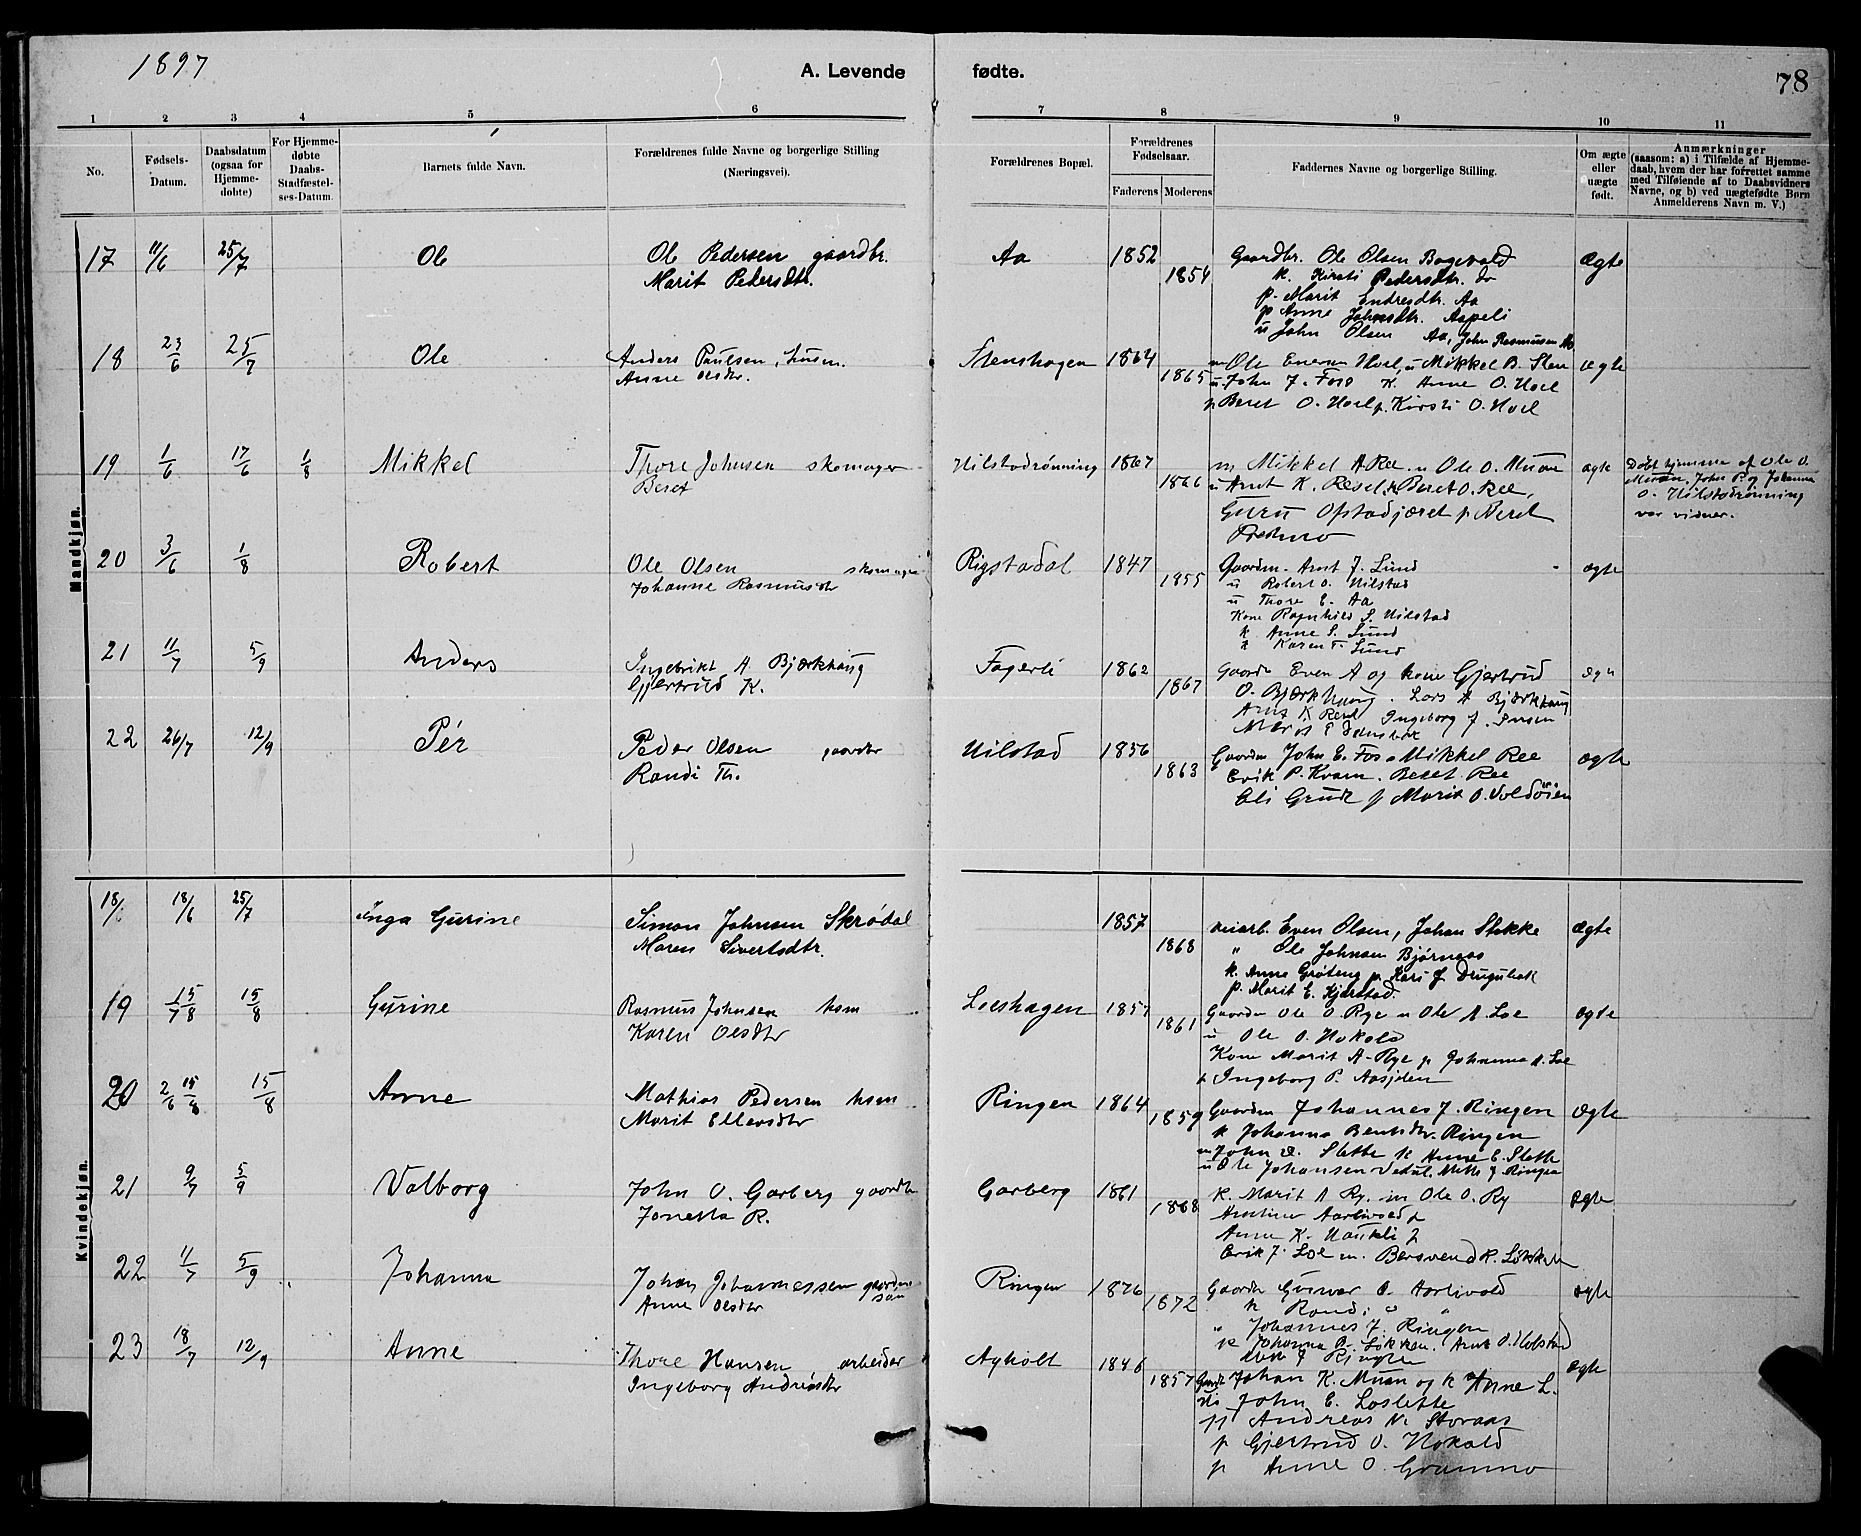 1897
A. Levende fødte.
78
1 2 3 4 5 6 7 8 9 10 11
No.
Fødsels-
Datum.
Daabsdatum
(ogsaa for
Hjemme-
døbte)
For Hjemme-
døbte
Daabs-
Stadfæstel-
ses-Datum.
Barnets fulde Navn.
Forældrenes fulde Navne og borgerlige Stilling
(Næringsvei).
Forældrenes Bopæl.
Forældrenes
Fødselsaar.
Faderens Moderens
Faddernes Navne og borgerlige Stilling.
Om ægte
eller
uægte
født.
Anmærkninger
(saasom: a) i Tilfælde af Hjemme-
daab, hvem der har forrettet samme
med Tilføiende af to Daabsvidners
Navne, og b) ved uægtefødte Børn
Anmelderens Navn m. V.)
Mandkjøn.
17 11/6 25/7 Ole Ole Pedersen gaardbr. Aa 1852 Gaardbr. Ole Olsen Bogevold Ægte
Marit Pedersdtr. 1854 k. Kirsti Pedersdtr. do
p. Marit Endresdtr. Aa
p Anne Johnsdtr. Aspeli
u John Olsen Aa, John Rasmussen Mo
18 23/6 25/7 Ole Anders Paulsen, husm. Stenshagen 1864 m Ole Enersen Hoel, u Mikkel B. Sten ægte
Anne Olsdtr. 1865 u. John J. Foss K. Anne O. Hoel
p Beret O. Hoel p. Kirsti O. Hoel
19 1/6 17/6 1/8 Mikkel Thore Johnsen skomager Uilstadrønning 1867 m Mikkel A Ree. u Ole O. Muan ægte Døbt hjemme af Ole O.
Beret 1866 u Arnt K. Resel, k Beret O. Ree, Muan. John P. og Johanna
Guru Opstadjæret p Beret O. Uilstadrønning
Presmo var vidner.
20 3/6 1/8 Robert Ole Olsen skomager Rigstadal 1847 Gaardm. Arnt J. Lund ægte
Johanne Rasmusdtr 1855 u Robert O. Uilstad
u Thore E. Aa
Kone Ragnhild S. Uilstad
k Anne S. Lund
k Karen T. Lund
21 11/7 5/9 Anders Ingebrikt A. Bjørkhaug Fagerli 1862 Gaardm Even A og kone Gjertrud ægte
Gjertrud K. 1867 O. Bjørkhaug. Lars A Bjørkhaug
Arnt K Resel Ingeborg J.
Marit E
22 26/7 12/9 Pér Peder Olsen gaardbr Uilstad 1856 Gaardm John E. Foss Mikkel Ree ægte
Randi Th. 1863 Erik P. Kvam. Beret Ree
Eli Grudt p Marit O. Voldøien
Kvindekjøn.
18 18/6 25/7 Inga Gurine Simon Johnsen Skrødal 1857 veiarb. Even Olsen, Johan Stokke Ægte
Maren Sivertsdtr. 1868 " Ole Johnsen Bjørnaas
k. Anne Grøteng p Kari J Drugubak
p. Marit E. Kjerstad.
19 15/7 8 15/8 Gurine Rasmus Johnsen husm Loeshagen 1857 Gaardm Ole O. Rye u Ole A. Loe ægte
Karen Olsdtr 1861 u Ole O. Hokald
Kone Marit A. Rye p Johanna A. Loe
p Ingeborg P. Aasjden
20 2/6 15/8 15/8 Anne Mathias Pedersen husm Ringen 1864 Gaardm Johannes J. Ringen Ægte
Marit Ellevsdtr 1859 k Johanna Bentsdtr. Ringen
m John E. Slette k Anne E. Slette
u Ole Johansen Mette J Ringen
21 9/7 5/9 Valborg John O. Garberg gaardbr Garberg 1861 k. Marit A Ry. m Ole O. Ry Ægte
Jonetta R. 1868 Aarlivold p
Anne K. Haukli p
Erik J. Loe m. Bersvend K. Løkken
22 11/7 5/9 Johanna Johan Johannessen gaardm Ringen 1876 Gaardm Gunvar O. Aarlivold ægte
Anne Olsdtr søn 1872 k Randi " "
" Johannes J. Ringen
k Johanna B. Løkken. Arnt O. Holstad
Mette J Ringen
23 18/7 12/9 Anne Thore Hansen arbeider Agholt 1846 Gaardm Johan K. Muan og k Anne L. Ægte
Ingeborg Andreasdtr 1857 John E. Loslette
Andreas N. Storaas
p Gjertrud O. Hokald
p Anne O. Gramno